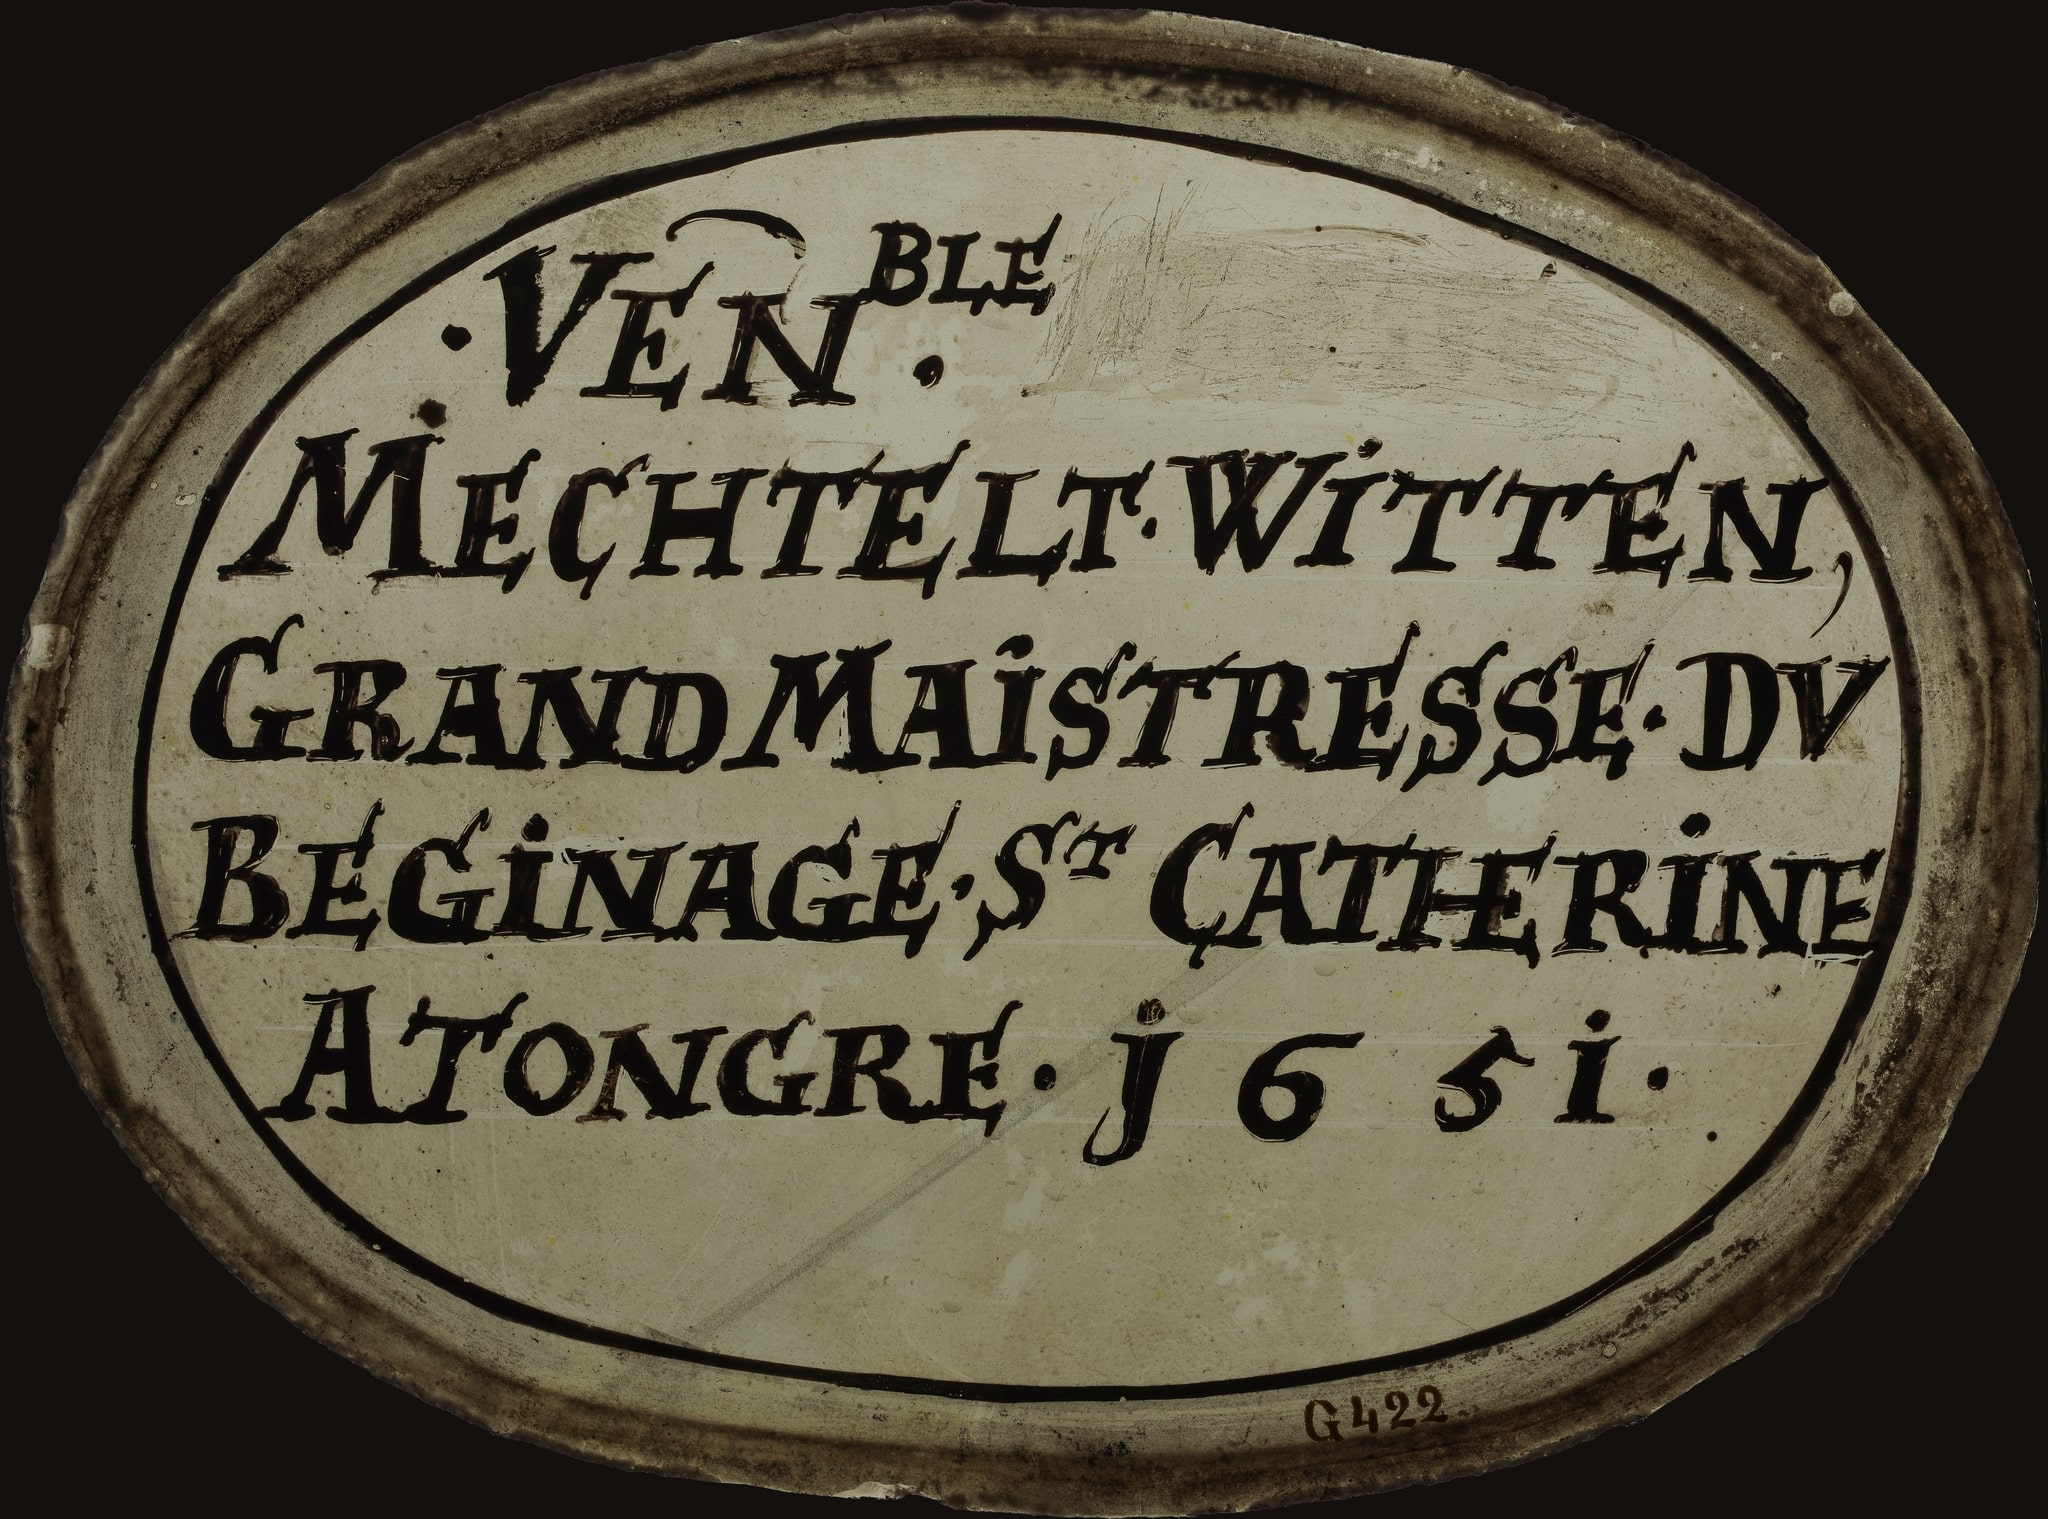 ·VEN^BLE.
MECHTELT·WITTEN,
GRANDMAISTRESSE·DV
BEGINAGE·S^T CATHERINE
ATONGRE·j651·
G422